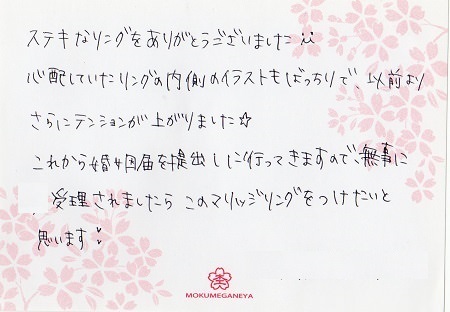 ステキなリングをありがとうございました
心配していたリングの内側のイラストもばっちりで、以前より
さらにテンションが上がりました☆
これから婚姻届を提出しに行ってきますので、無事に
受理されましたら このマリッジリングをつけたいと
思います
MOKUMEGANEYA